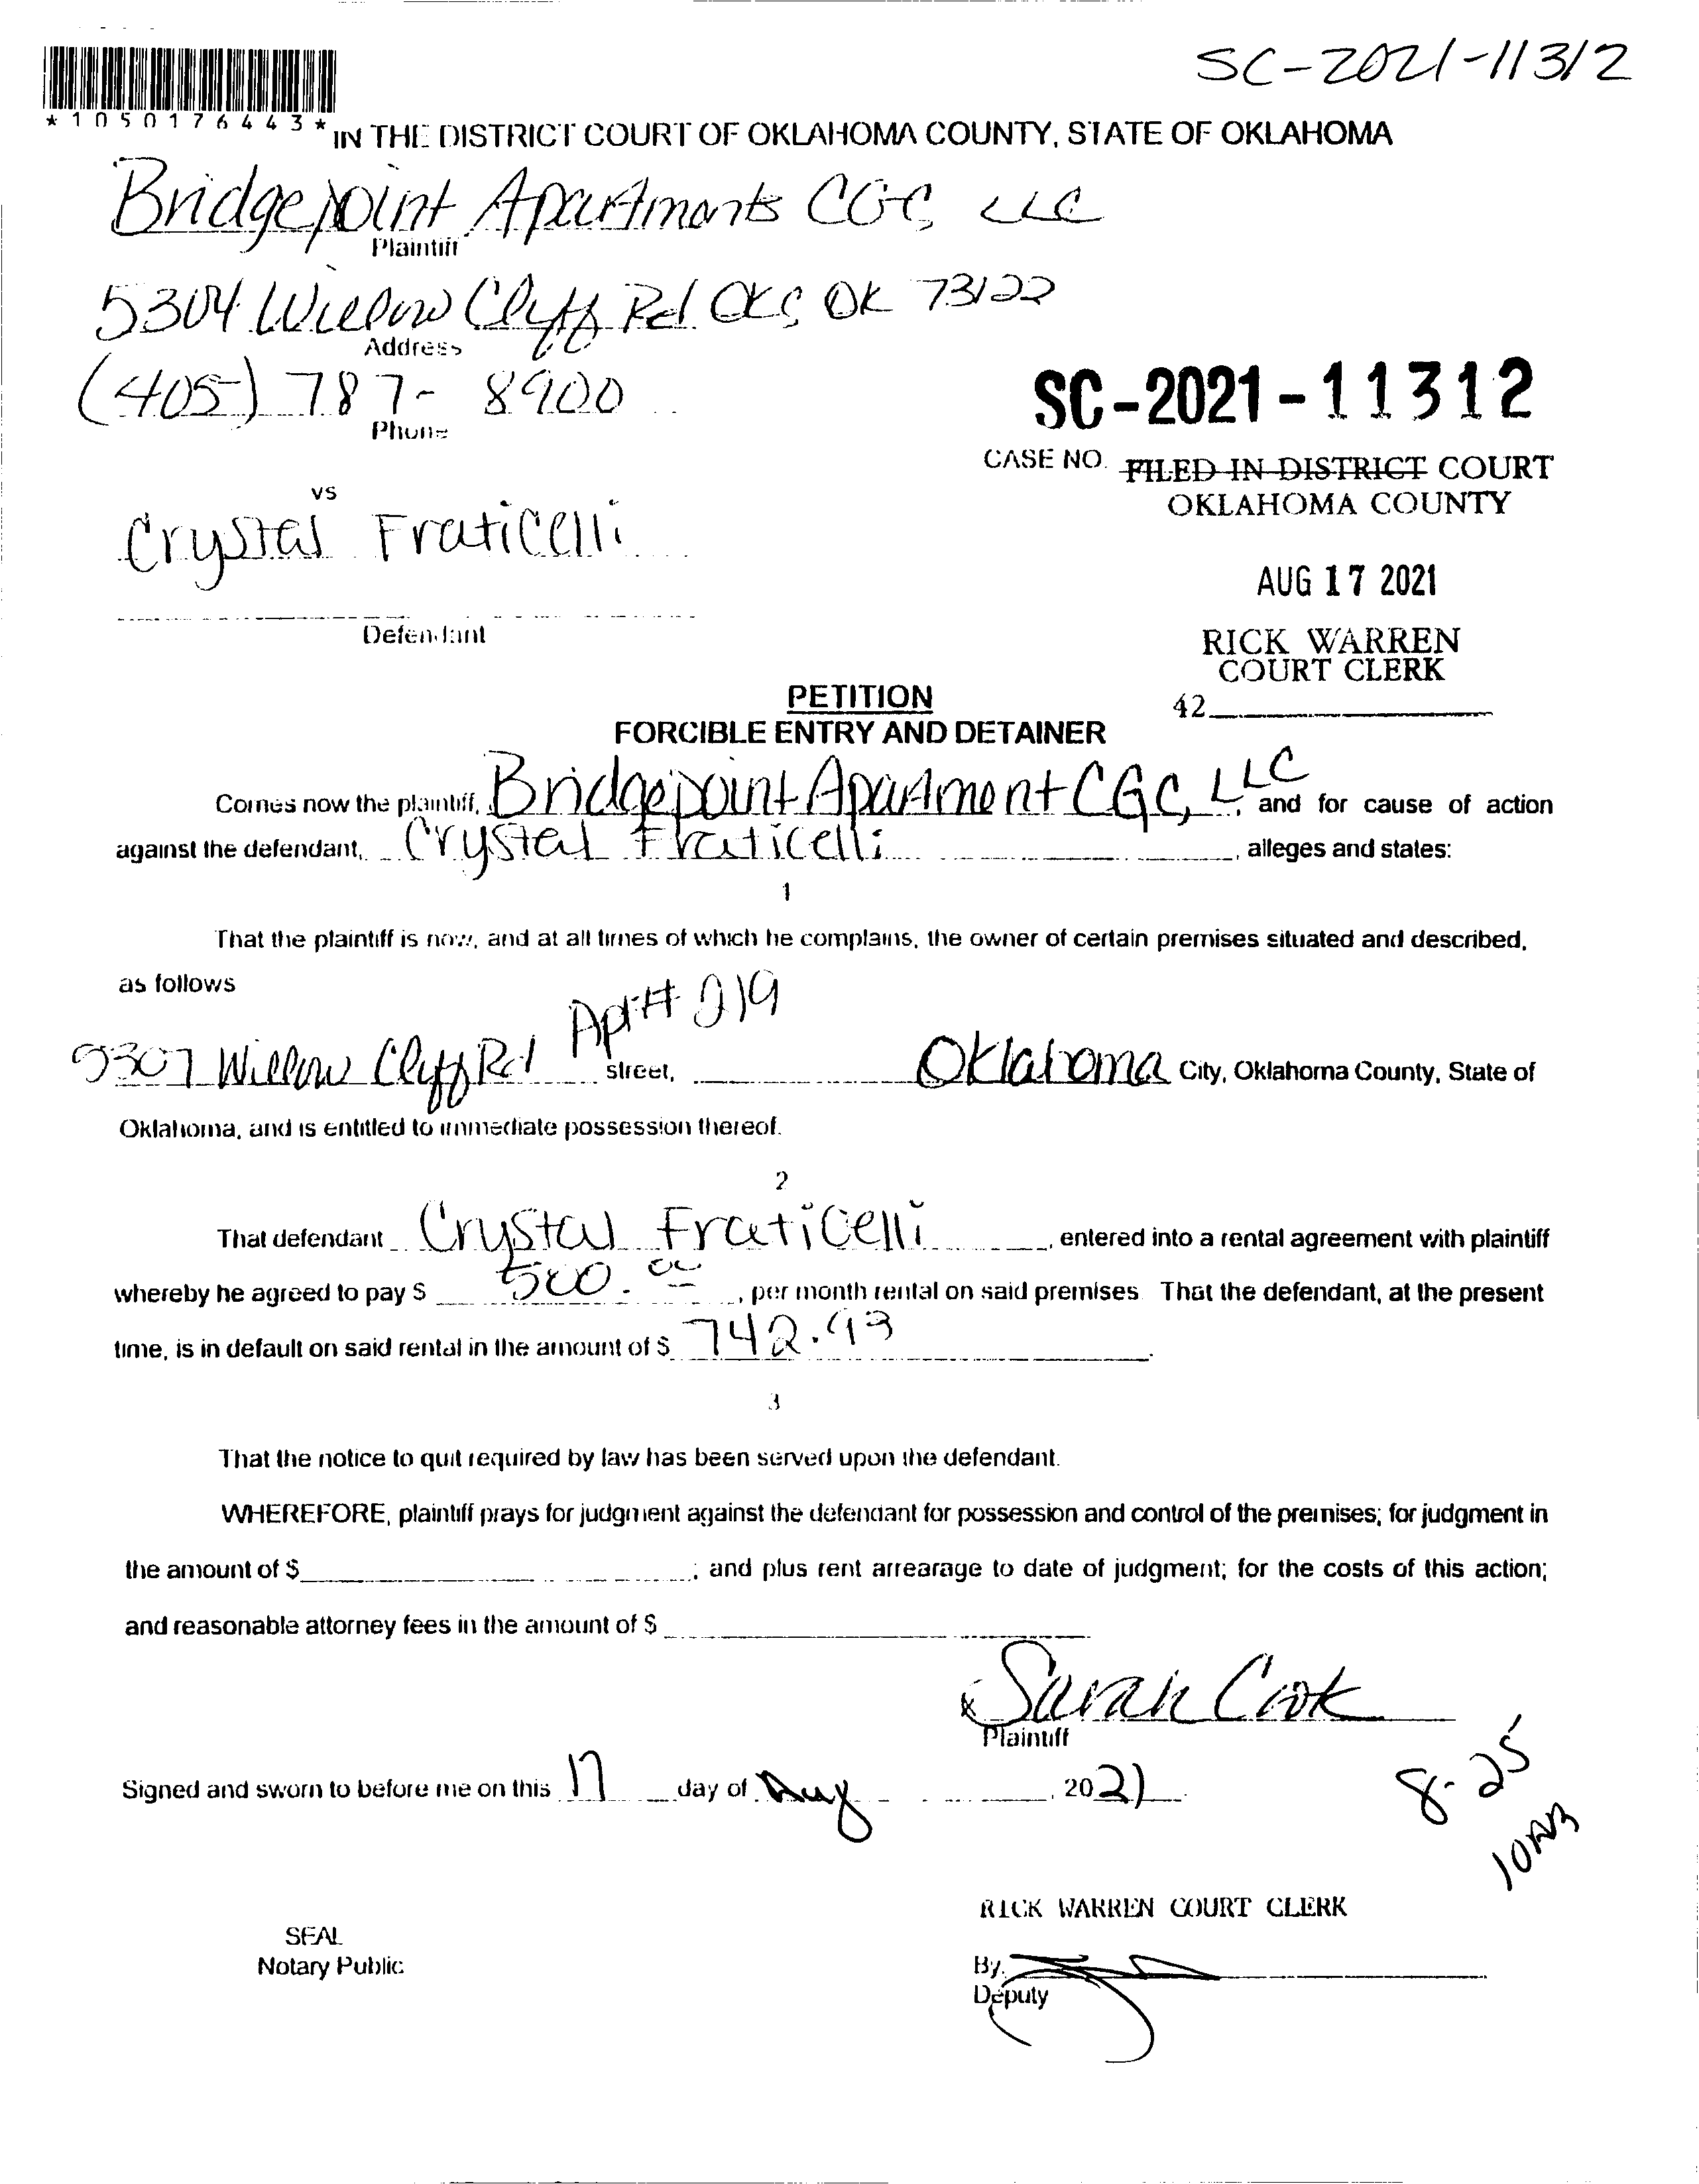 SC-2021-11312
*1050176443*
IN THE DISTRICT COURT OF OKLAHOMA COUNTY, STATE OF OKLAHOMA
Bridgepoint Apartments CGC, LLC
Plaintiff
5304 Willow Cliff Rd OKC, OK 73122
Address
(405) 787-8900
Phone
SC-2021-11312
CASE NO.
FILED IN DISTRICT COURT
OKLAHOMA COUNTY
vs
Crystal Fraticelli
AUG 17 2021
Defendant
RICK WARREN
COURT CLERK
42
PETITION
FORCIBLE ENTRY AND DETAINER
Comes now the plaintiff, Bridgepoint Apartment CGC, LLC, and for cause of action
against the defendant, Crystal Fraticelli, alleges and states:
1
That the plaintiff is now, and at all times of which he complains, the owner of certain premises situated and described,
as follows
Apt # 219
5307 Willow Cliff Rd street, Oklahoma City, Oklahoma County, State of
Oklahoma, and is entitled to immediate possession thereof.
2
That defendant Crystal Fraticelli, entered into a rental agreement with plaintiff
whereby he agreed to pay $ 500.00, per month rental on said premises. That the defendant, at the present
time, is in default on said rental in the amount of $ 742.93.
3
That the notice to quit required by law has been served upon the defendant.
WHEREFORE, plaintiff prays for judgment against the defendant for possession and control of the premises; for judgment in
the amount of $ ; and plus rent arrearage to date of judgment; for the costs of this action;
and reasonable attorney fees in the amount of $
x Sarah Cook
Plaintiff
Signed and sworn to before me on this 17 day of Aug, 2021.
8-25
RICK WARREN COURT CLERK
SEAL
Notary Public
By.
Deputy